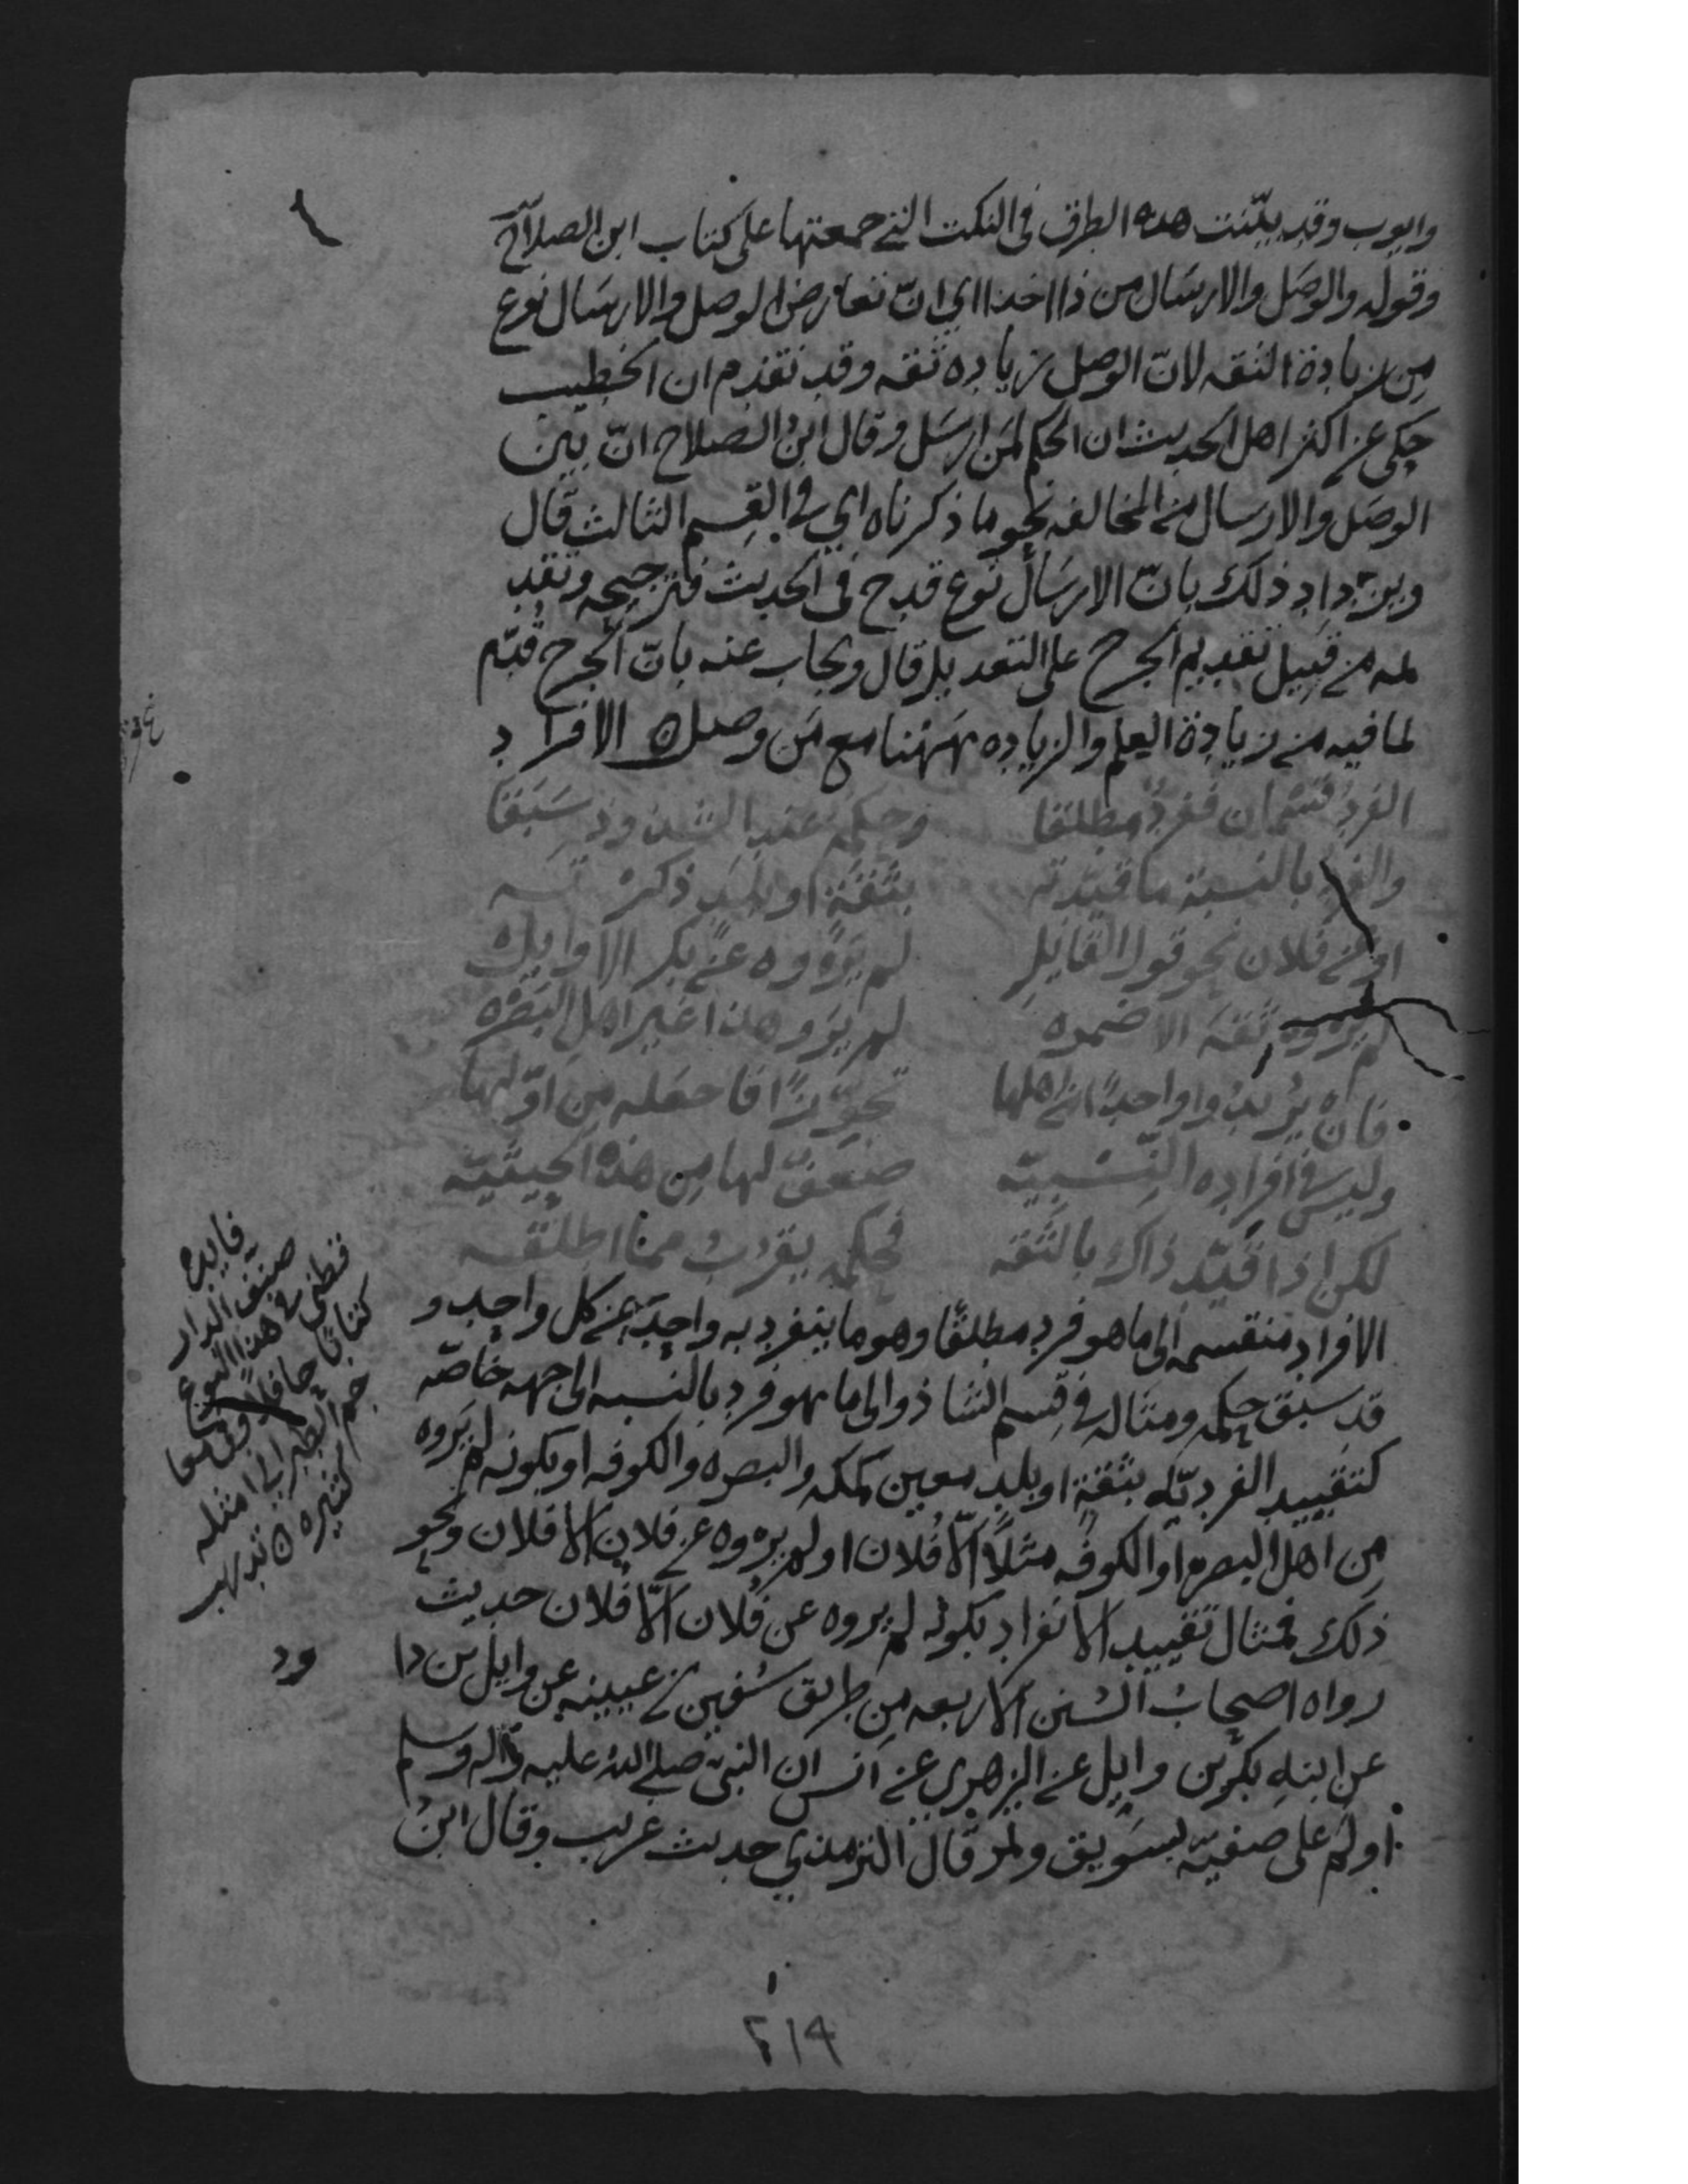 وايوب وقد بيّنت هذه الطرق فى النكت التي جمعتها على كتاب ابن الصلاح
وقوله والوصل والارسال من ذا اخذا اي انّ تعارض الوصل والارسال نوع
من زيادة الثقه لانّ الوصل زياده ثقه وقد تقدم ان الخطيب
حكى عن اكثر اهل الحديث ان الحكم لمن ارسل وقال ابن الصلاح انّ بين
الوصل والارسال من المخالفه نحو ما ذكرناه اي في القسم الثالث قال
ويزداد ذلك بانّ الارسال نوع قدح فى الحديث فترجيحه وتقد
يمه من قبيل تقديم الجرح على التعديل قال ويجاب عنه بانّ الجرح قدّم
لما فيه من زيادة العلم والزياده ههنا مع من وصل الافراد
الفرد قسمان ففرد مطلقا وحكمه عند الشذوذ سبقا
والفرد بالنسبة ما قيدته بثقة او بلد ذكرته
او عن فلان نحو قول القايل لم يروه عن بكر الا وايل
لم يروه ثقة الا ضمره لم يرو هذا غير اهل البصره
فان يريدوا واحدًا من اهلها تجوّزًا فاجعله من اوّلها
وليس في افراده النّسبيّه ضعف لها من هذه الحيثيّه
لكن اذا قيّد ذاك بالثقه فحكمه يقرب مما اطلقه
الافراد منقسمه الى ما هو فرد مطلقًا وهو ما ينفرد به واحد عن كل واحد و
قد سبق حكمه ومثاله في قسم الشاذ والى ما هو فرد بالنسبه الى جهه خاصّه
كتقييد الفرديّه بثقة او بلد معين كمكه والبصره والكوفه او بكونه لم يروه
من اهل البصره او الكوفه مثلًا الّا فلان او لم يروه عن فلان الا فلان ونحو
ذلك فمثال تقييد الانفراد بكونه لم يروه عن فلان الّا فلان حديث
رواه اصحاب السنن الاربعه من طريق سفين بن عيينه عن وايل بن دا
ود
عن ابنه بكر بن وايل عن الزهري عن انس ان النبي صلى الله عليه واله وسلم
اولم على صفيّه بسويق وتمر قال الترمذي حديث غريب وقال ابن
فايده
صنف الدار
قطني في هذا النوع
كتابًا حافلًا وفي معا
جم الطبراني امثله
كثيره
٢١٩